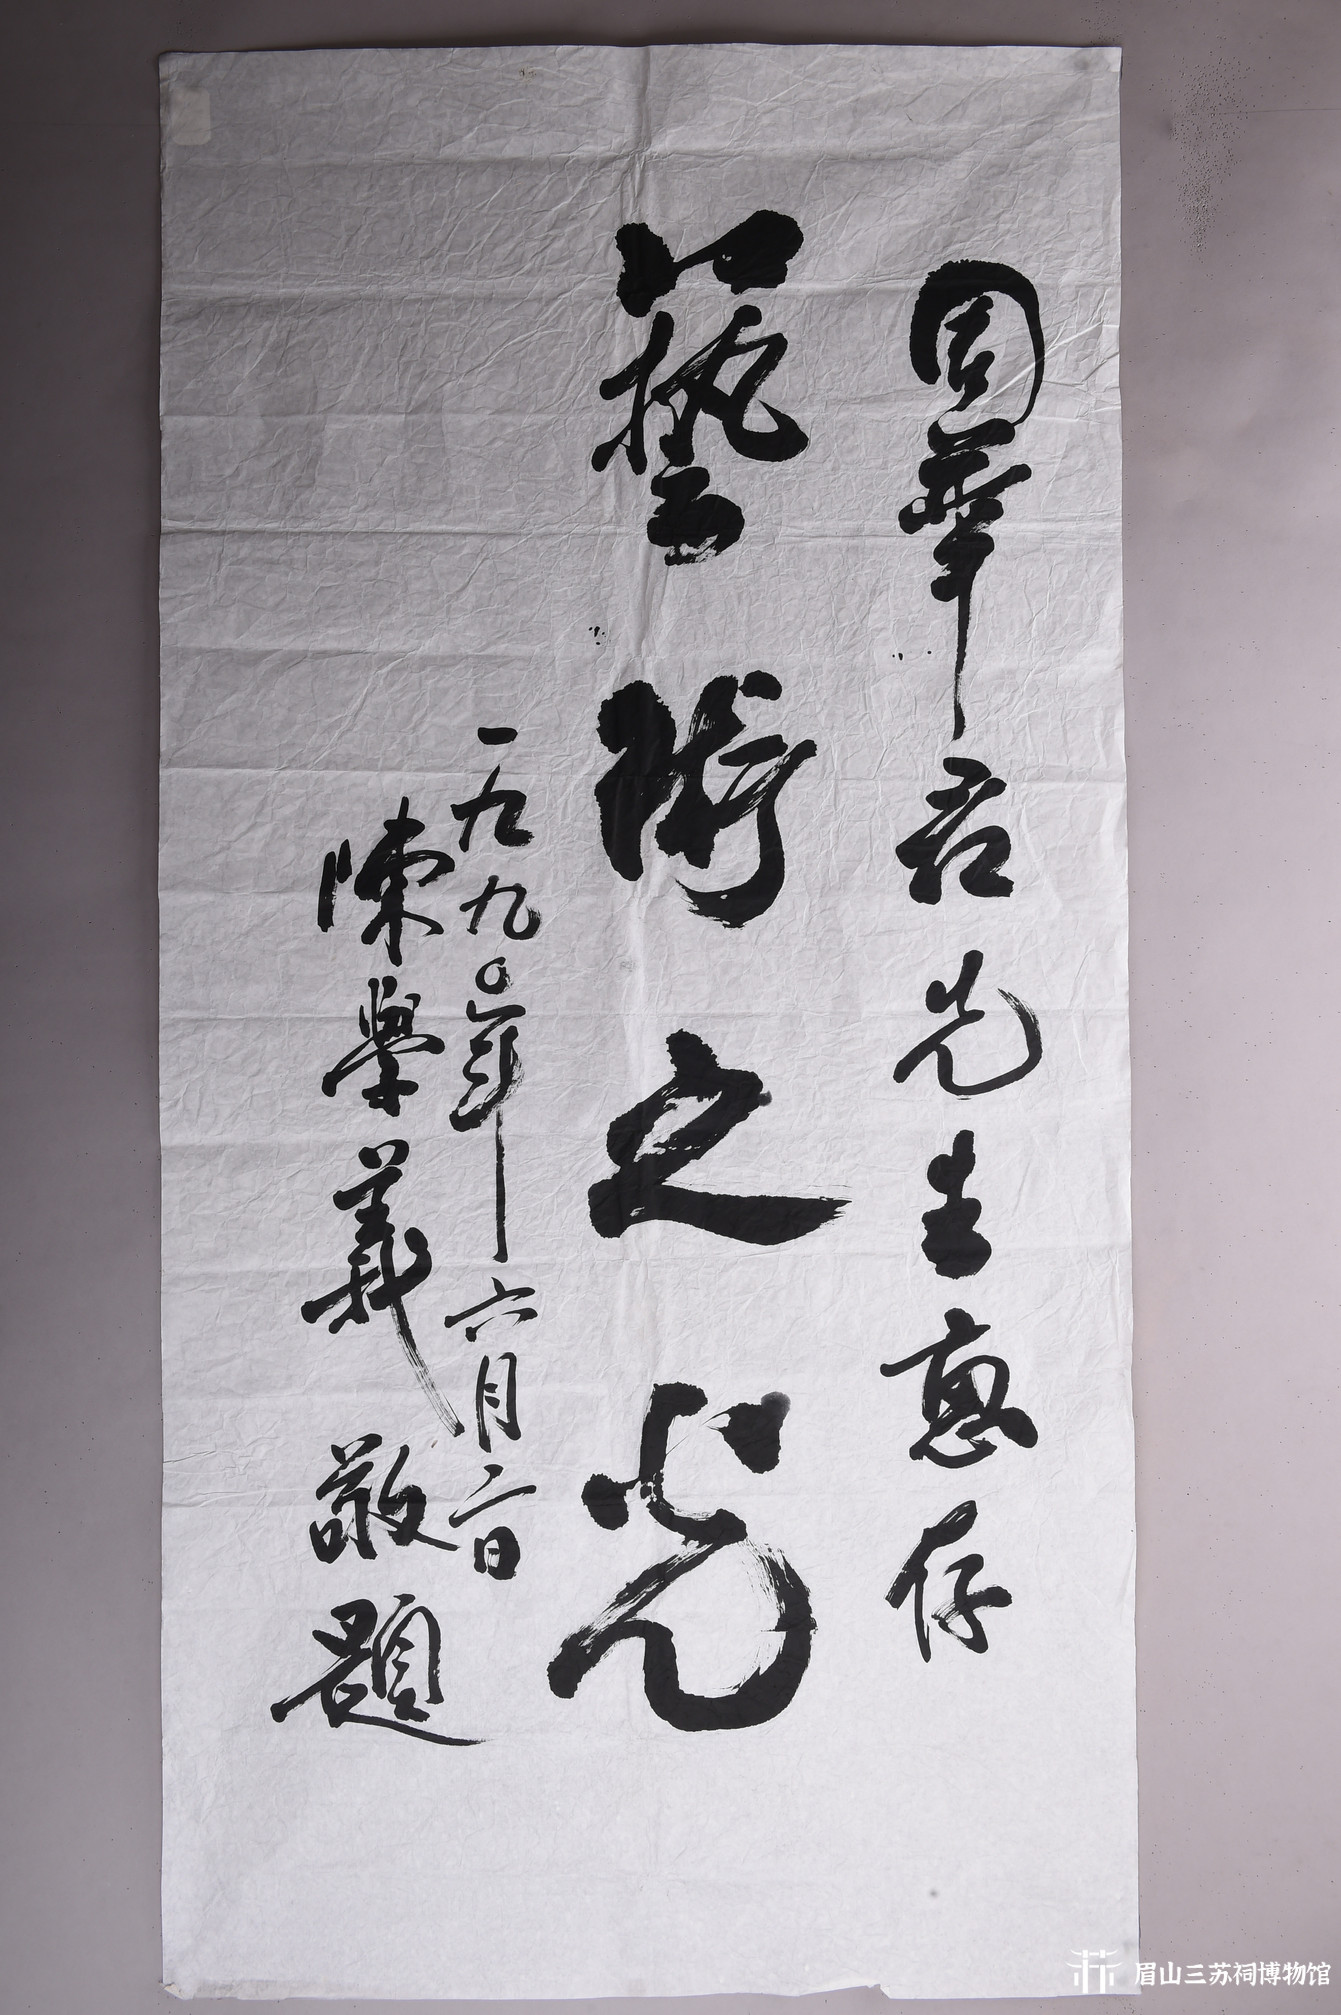 周華君先生惠存
藝術之光
一九九〇年六月二日
陳學義敬題
眉山三苏祠博物馆